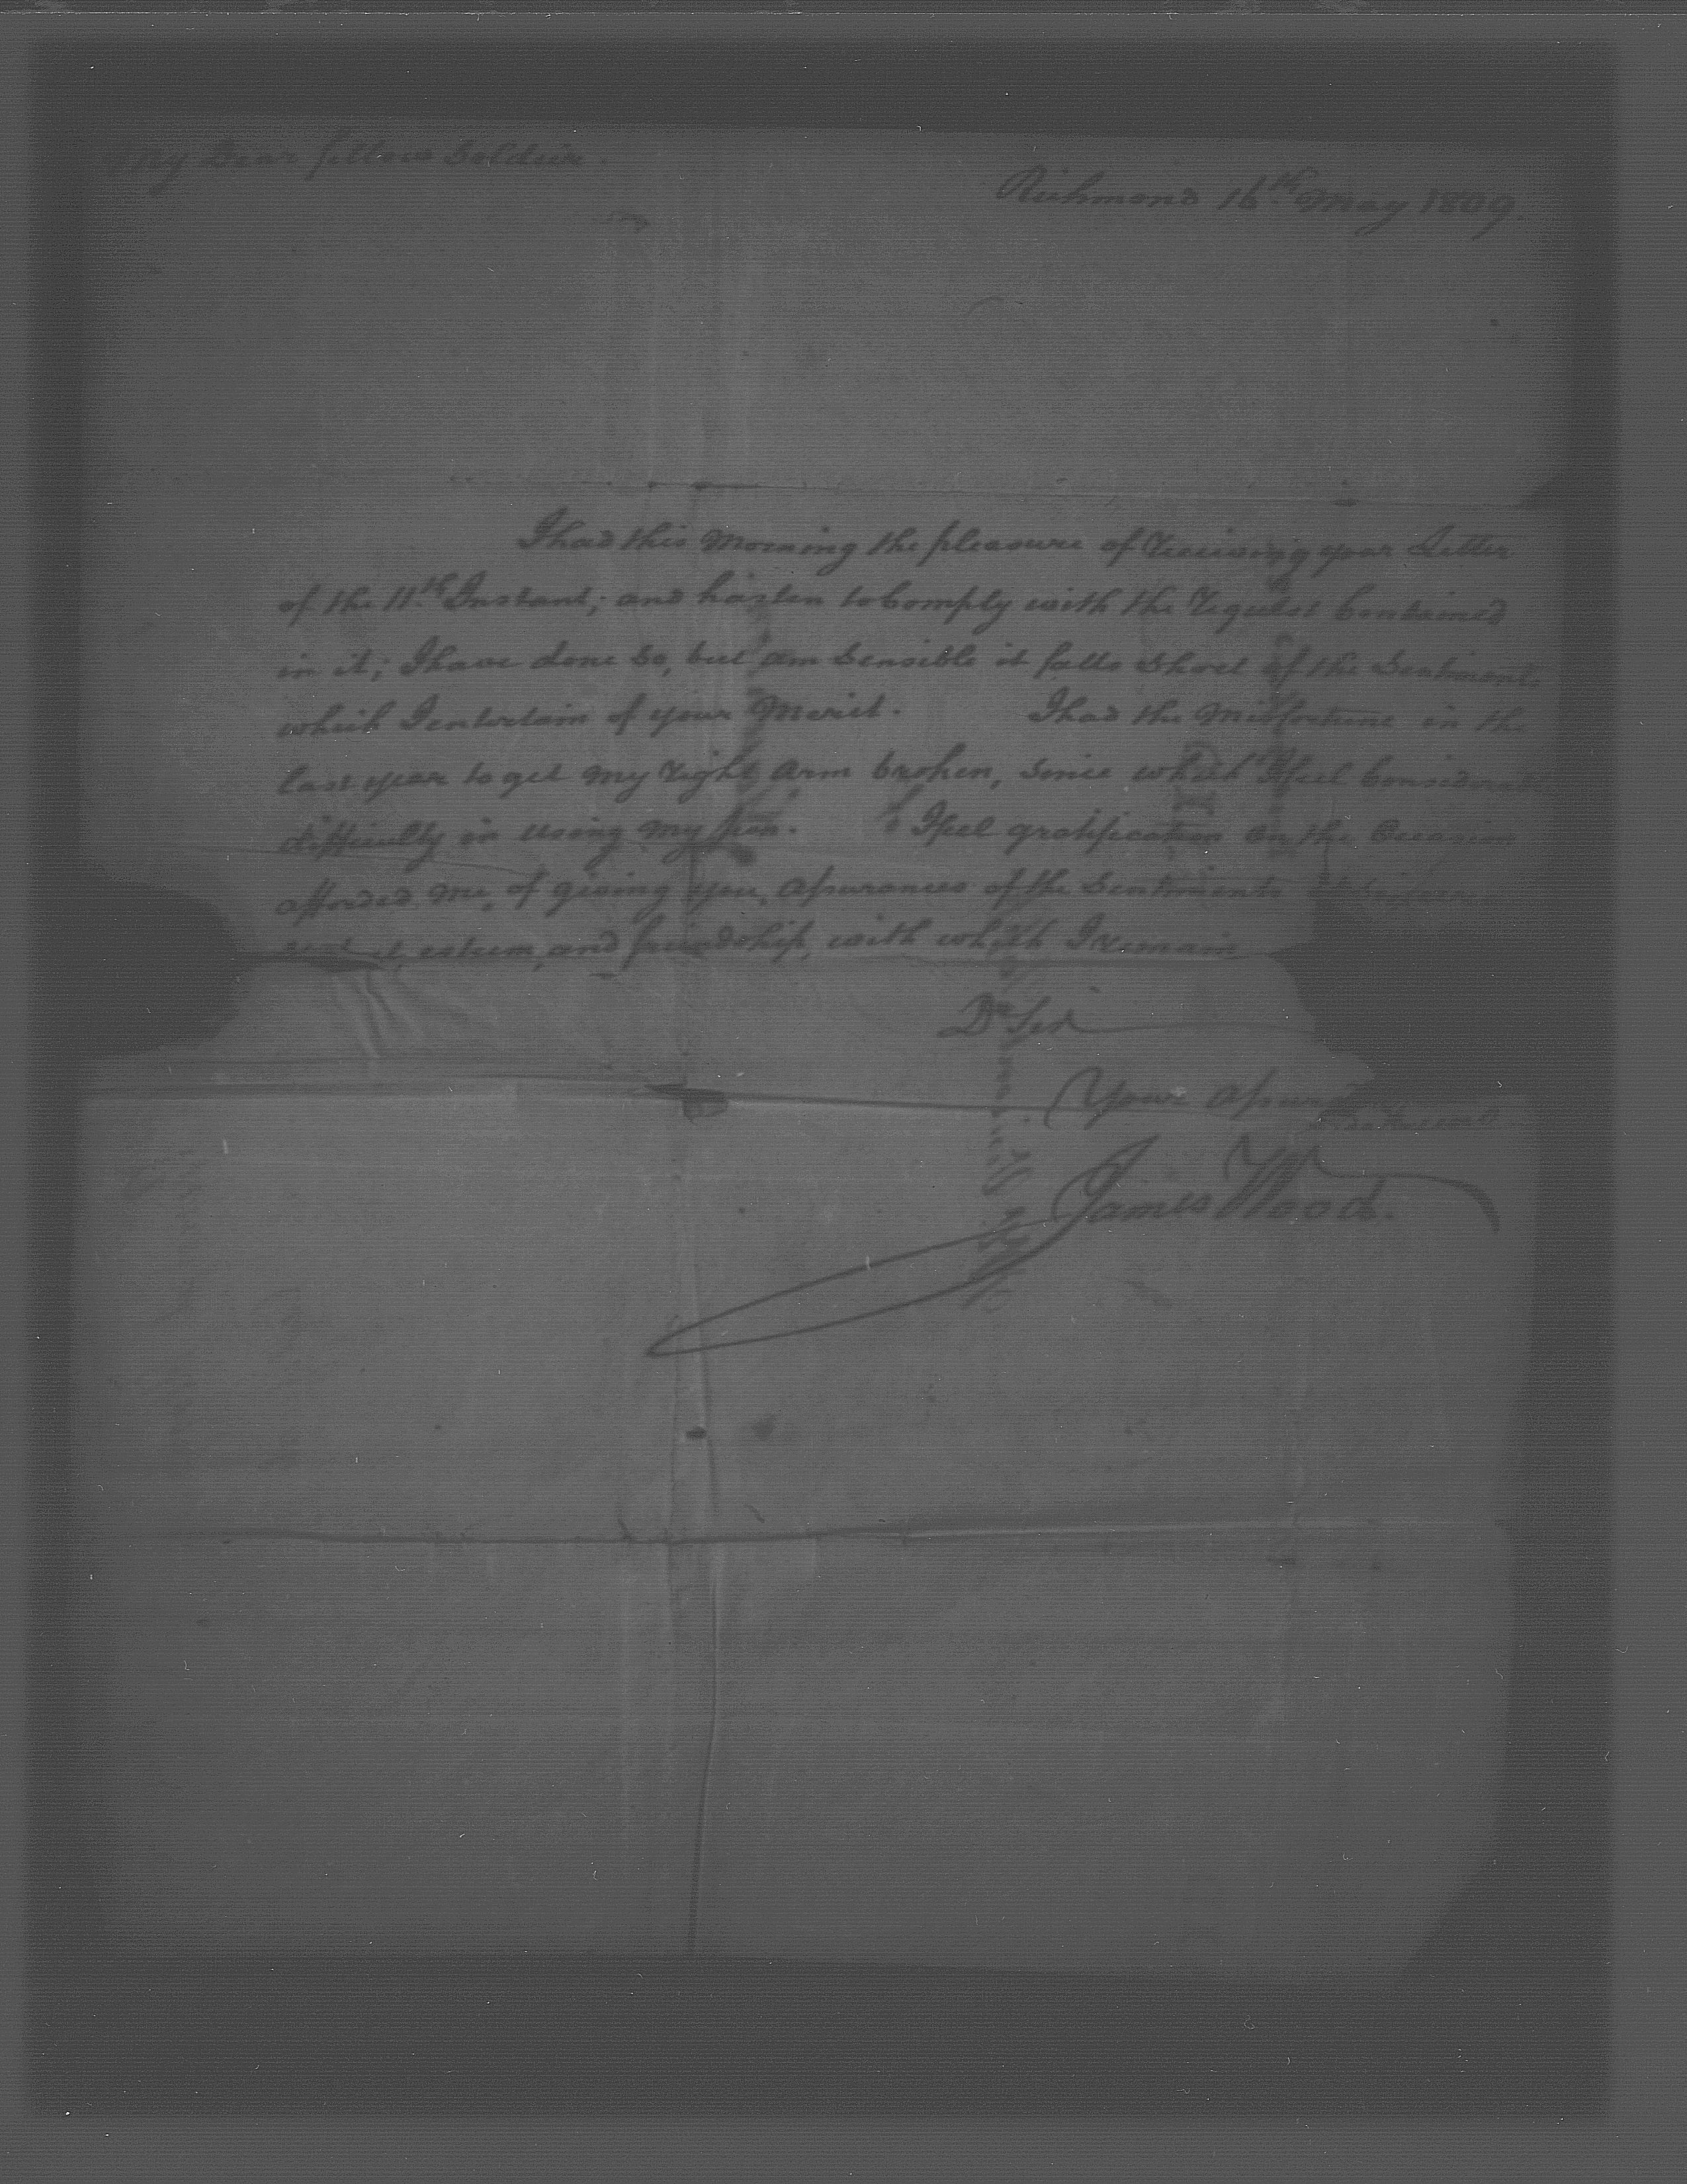 My Dear fellow Soldier.
Richmond 16th May 1809.
I had this Morning the pleasure of Receiving your Letter
of the 11th Instant; and hasten to Comply with the Request Contained
in it; I have done so, but am Sensible it falls Short of the Sentiments
which I entertain of your Merit. I had the Misfortune in the
last year to get my Right Arm broken, Since which I feel Considerable
difficulty in using my pen. I feel gratification on the Occasion
afforded me, of giving you, Assurances of the Sentiments of Sincere
esteem, and friendship, with which I remain
Dr Sir
Your Assured
James Wood.